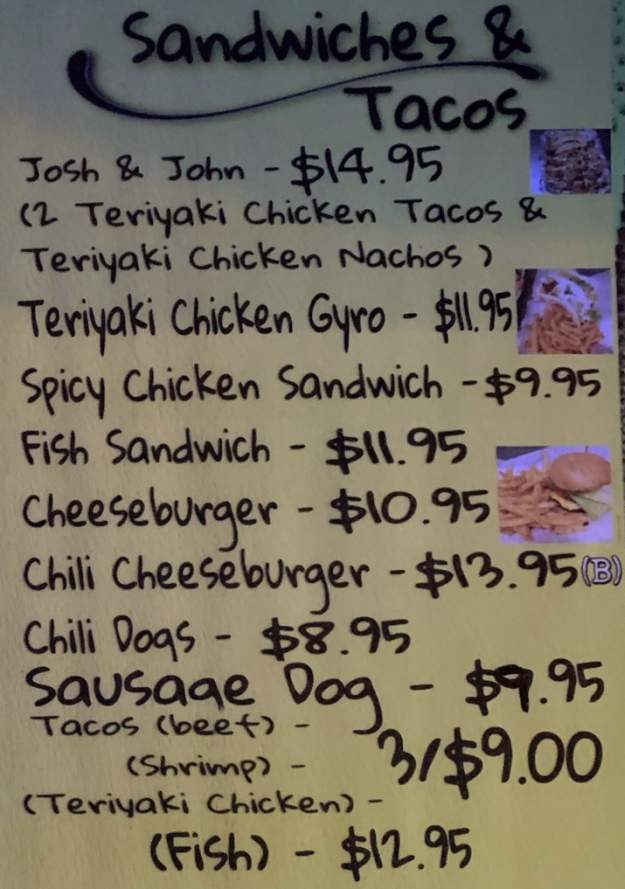 Sandwiches &
Tacos
Josh & John - $14.95
(2 Teriyaki Chicken Tacos &
Teriyaki Chicken Nachos)
Teriyaki Chicken Gyro - $11.95
Spicy Chicken Sandwich - $9.95
Fish Sandwich - $11.95
Cheeseburger - $10.95
Chili Cheeseburger - $13.95 (B)
Chili Dogs - $8.95
Sausage Dog - $9.95
Tacos (beef) -
(Shrimp) - 3/$9.00
(Teriyaki Chicken) -
(Fish) - $12.95